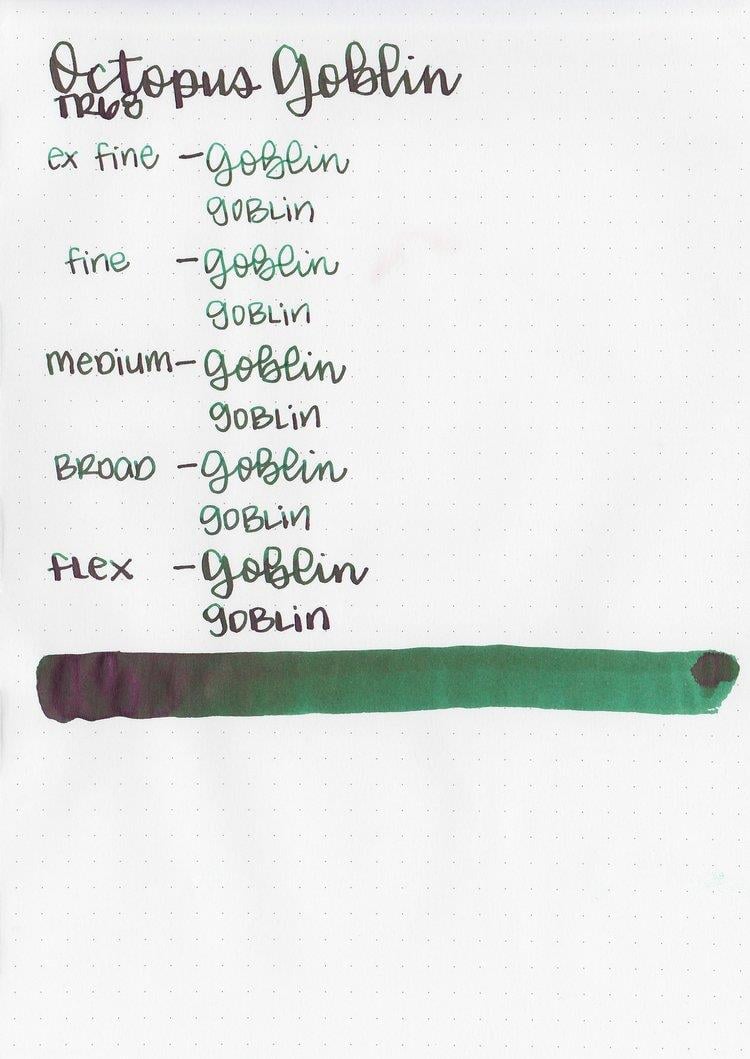 Octopus Goblin
TR68
ex fine - goblin
goBLin
fine - goblin
goBLin
meDium - goblin
goBLin
BROAD - goblin
goBLin
fLex - goblin
goBLin